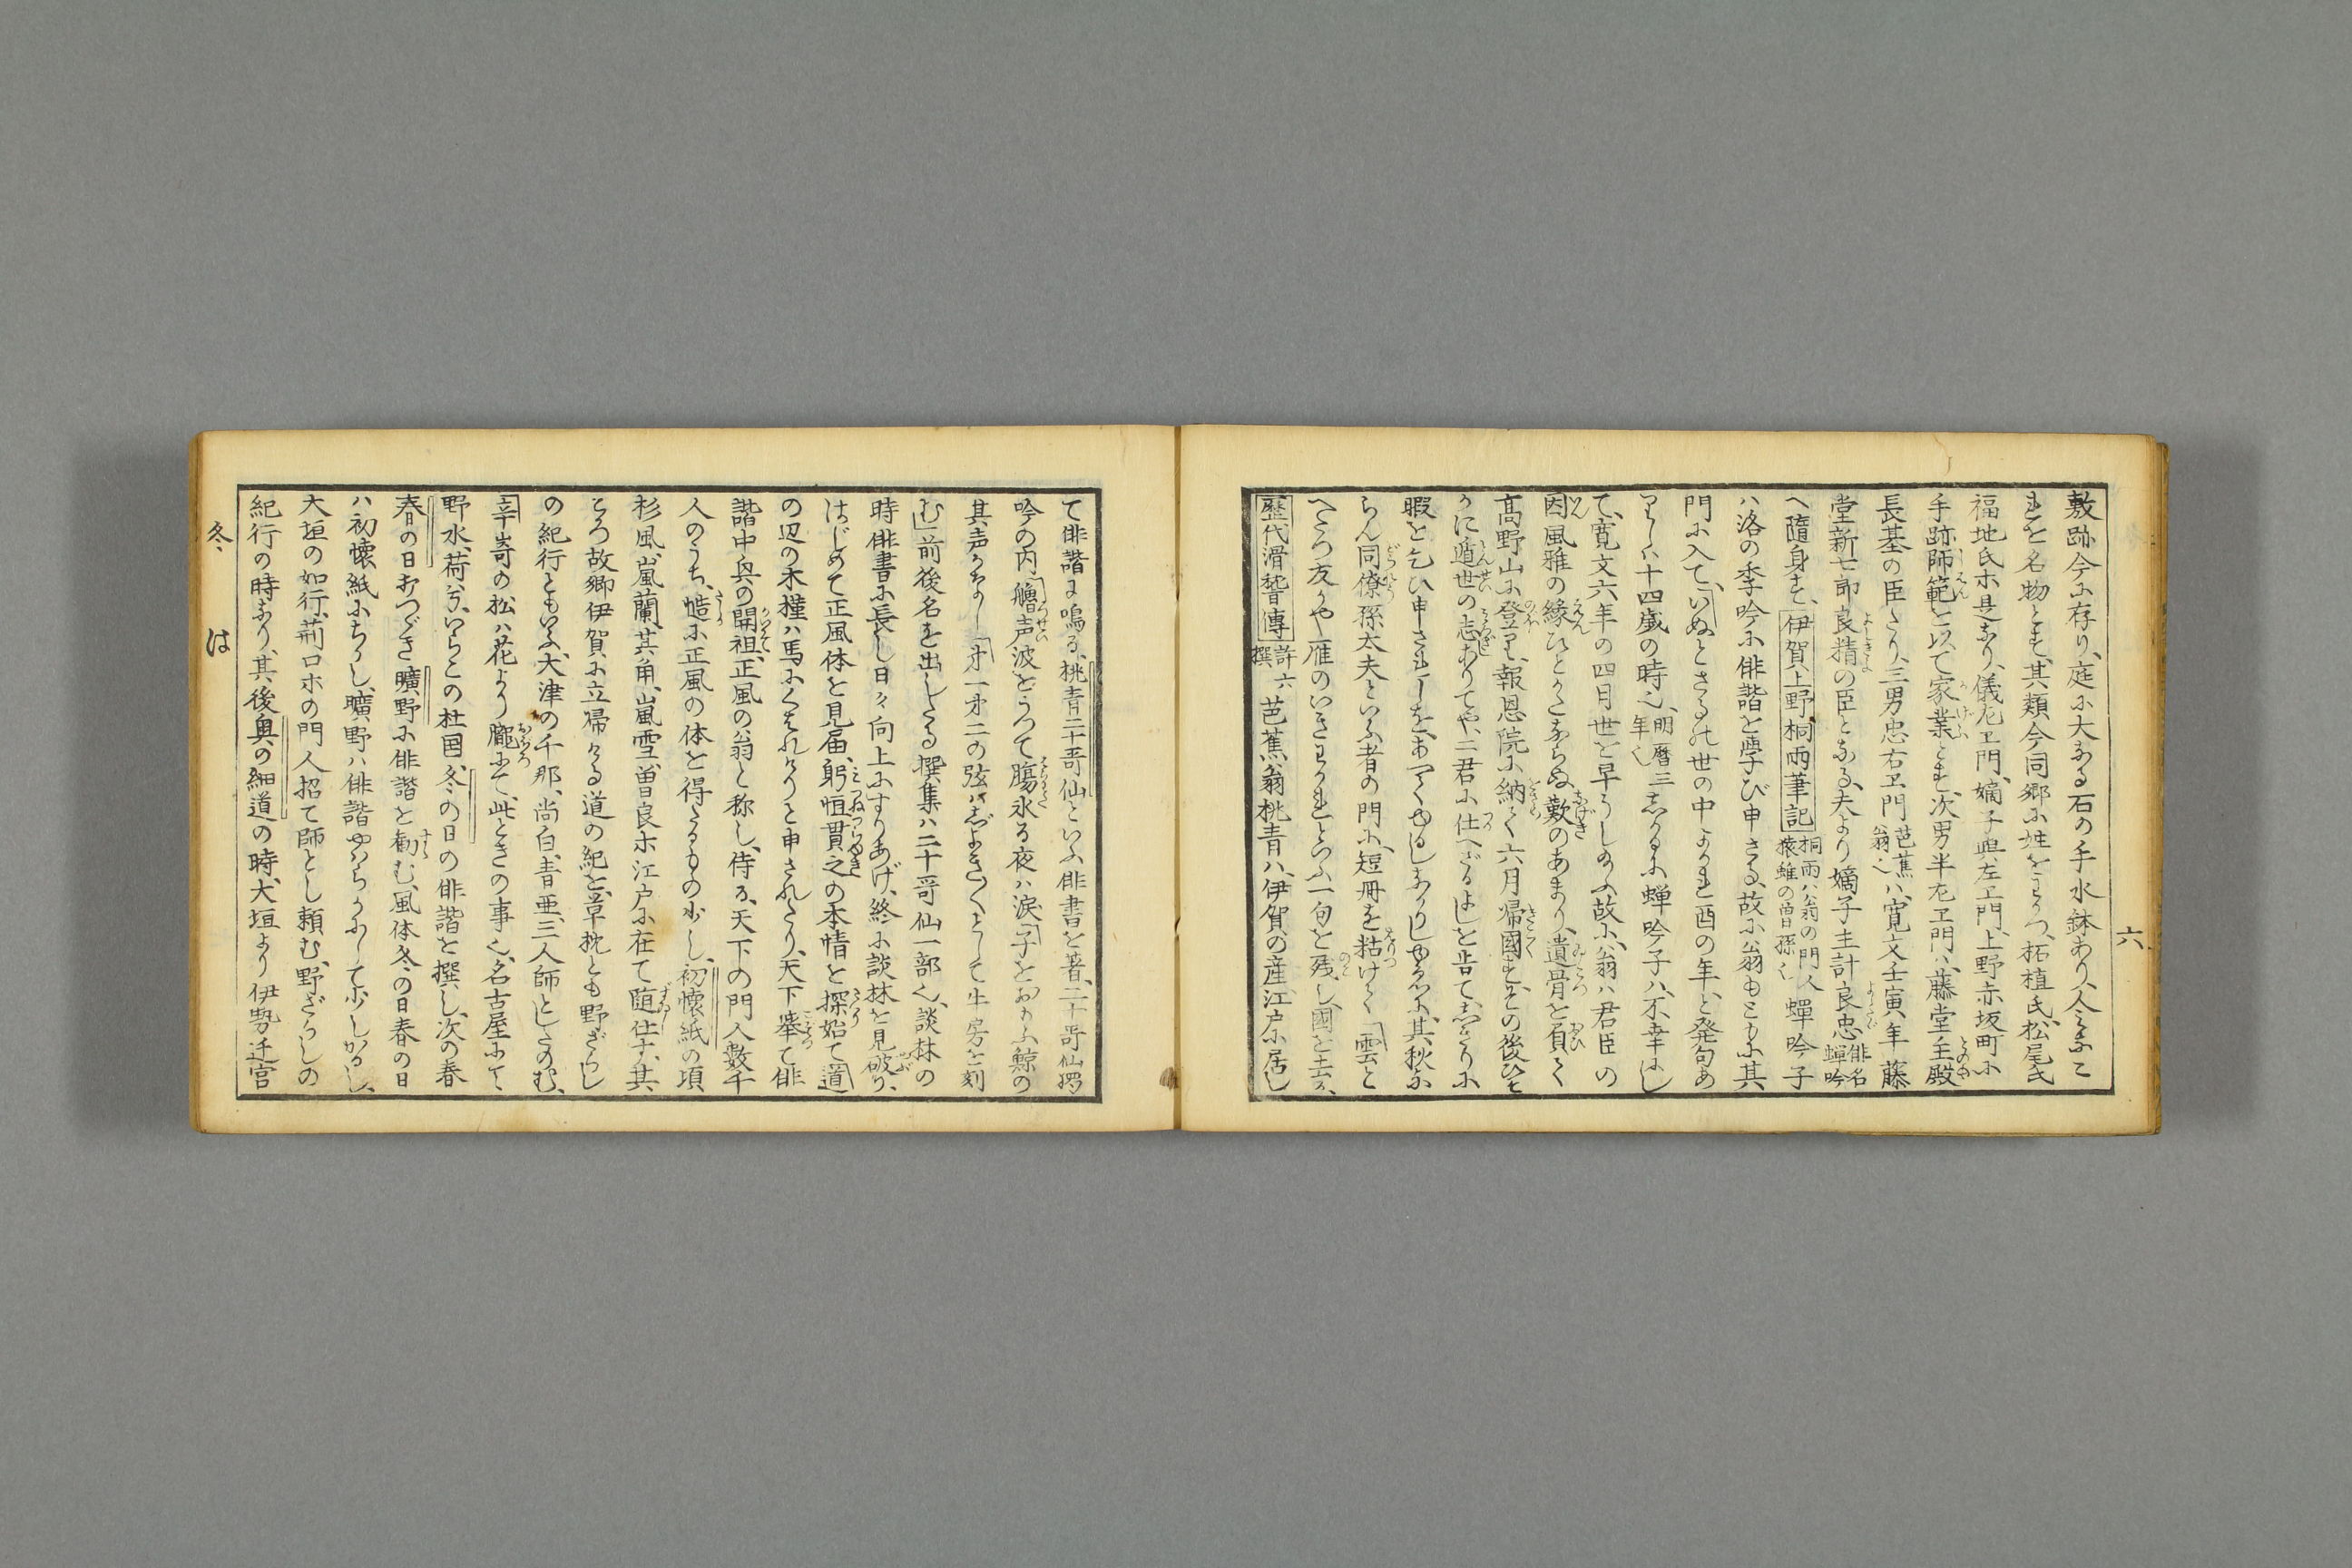 六
敷跡今に存り、庭に大なる石の手水鉢あり、人々よんで
是を名物とす、其類今同郷に姓をわかつ、柘植氏、松尾氏
福地氏ホ是なり、儀左エ門、嫡子與左エ門、上野赤坂町に
手跡師範を以て家業とす、次男半左エ門ハ、藤堂主殿
長基の臣たり、三男忠右エ門芭蕉翁也ハ、寛文壬寅年藤
堂新七郎良精の臣となる、夫より嫡子主計良忠俳名蝉吟
へ隨身す、伊賀上野桐雨筆記桐雨ハ翁の門人猿雖の曽孫也蝉吟子
ハ洛の季吟に俳諧を学び申さる、故に翁もともに其
門に入て、「いぬとさるの世の中よかれ酉の年、と発句あ
りしハ十四歳の時也、明暦三年也しかるに蝉吟子ハ、不幸にし
て、寛文六年の四月世を早うし給ふ、故に、翁ハ君臣の
因風雅の縁ひとかたならぬ歎のあまり、遺骨を負て
高野山に登り、報恩院に納て六月帰國す、その後ひそ
かに遁世の志ありてや、二君に仕へざるよしを告て、しきりに
暇を乞ひ申されしを、あへてゆるしなかりしゆゑに、其秋に
らん同僚孫太夫といふ者の門に、短冊を粘けて「雲と
へだつ友かや雁のいきわかれといふ一句を残し國を去る、
歴代滑稽傳許六撰、芭蕉翁桃青ハ、伊賀の産、江戸に居し
て俳諧に鳴る、桃青二十哥仙といふ俳書を著、二十哥仙揚
吟の内、「艪声波をうつて膓氷る夜ハ涙「子をおもふ鯨の
其声かなし「才一才二の弦ハ
む」前後名を出したる撰集ハ二十哥仙一部也、談林の
時俳書に長し日々向上にすりあげ、終に談林を見破り、
はじめて正風体を見届、躬恒貫之の本情を探始て「道
の辺の木槿ハ馬にくはれけりと申されたり、天下挙て俳
諧中興の開祖、正風の翁と称し、侍る、天下の門人数千
人のうち、慥に正風の体を得たるもの少し、初懐紙の頃
杉風、嵐蘭、其角、嵐雪、曽良ホ江戸に在て随仕す、其
ころ故郷伊賀に立帰りける道の紀を、草枕とも野ざらし
の紀行ともいふ、大津の千那、尚白、青亜、三人師とたのむ、
「辛崎の松ハ花より朧にて、此ときの事也、名古屋にて、
野水、荷兮、いらこの杜国、冬の日の俳諧を撰し、次の春
春の日打つゞき曠野に俳諧を勧む、風体冬の日春の日
ハ初懐紙にちかし、曠野ハ俳諧やはらかにして少しかるし、
大垣の如行、荊口ホの門人招て師とし頼む、野ざらしの
紀行の時なり、其後奥の細道の時、大垣より伊勢迁宮
冬、 は